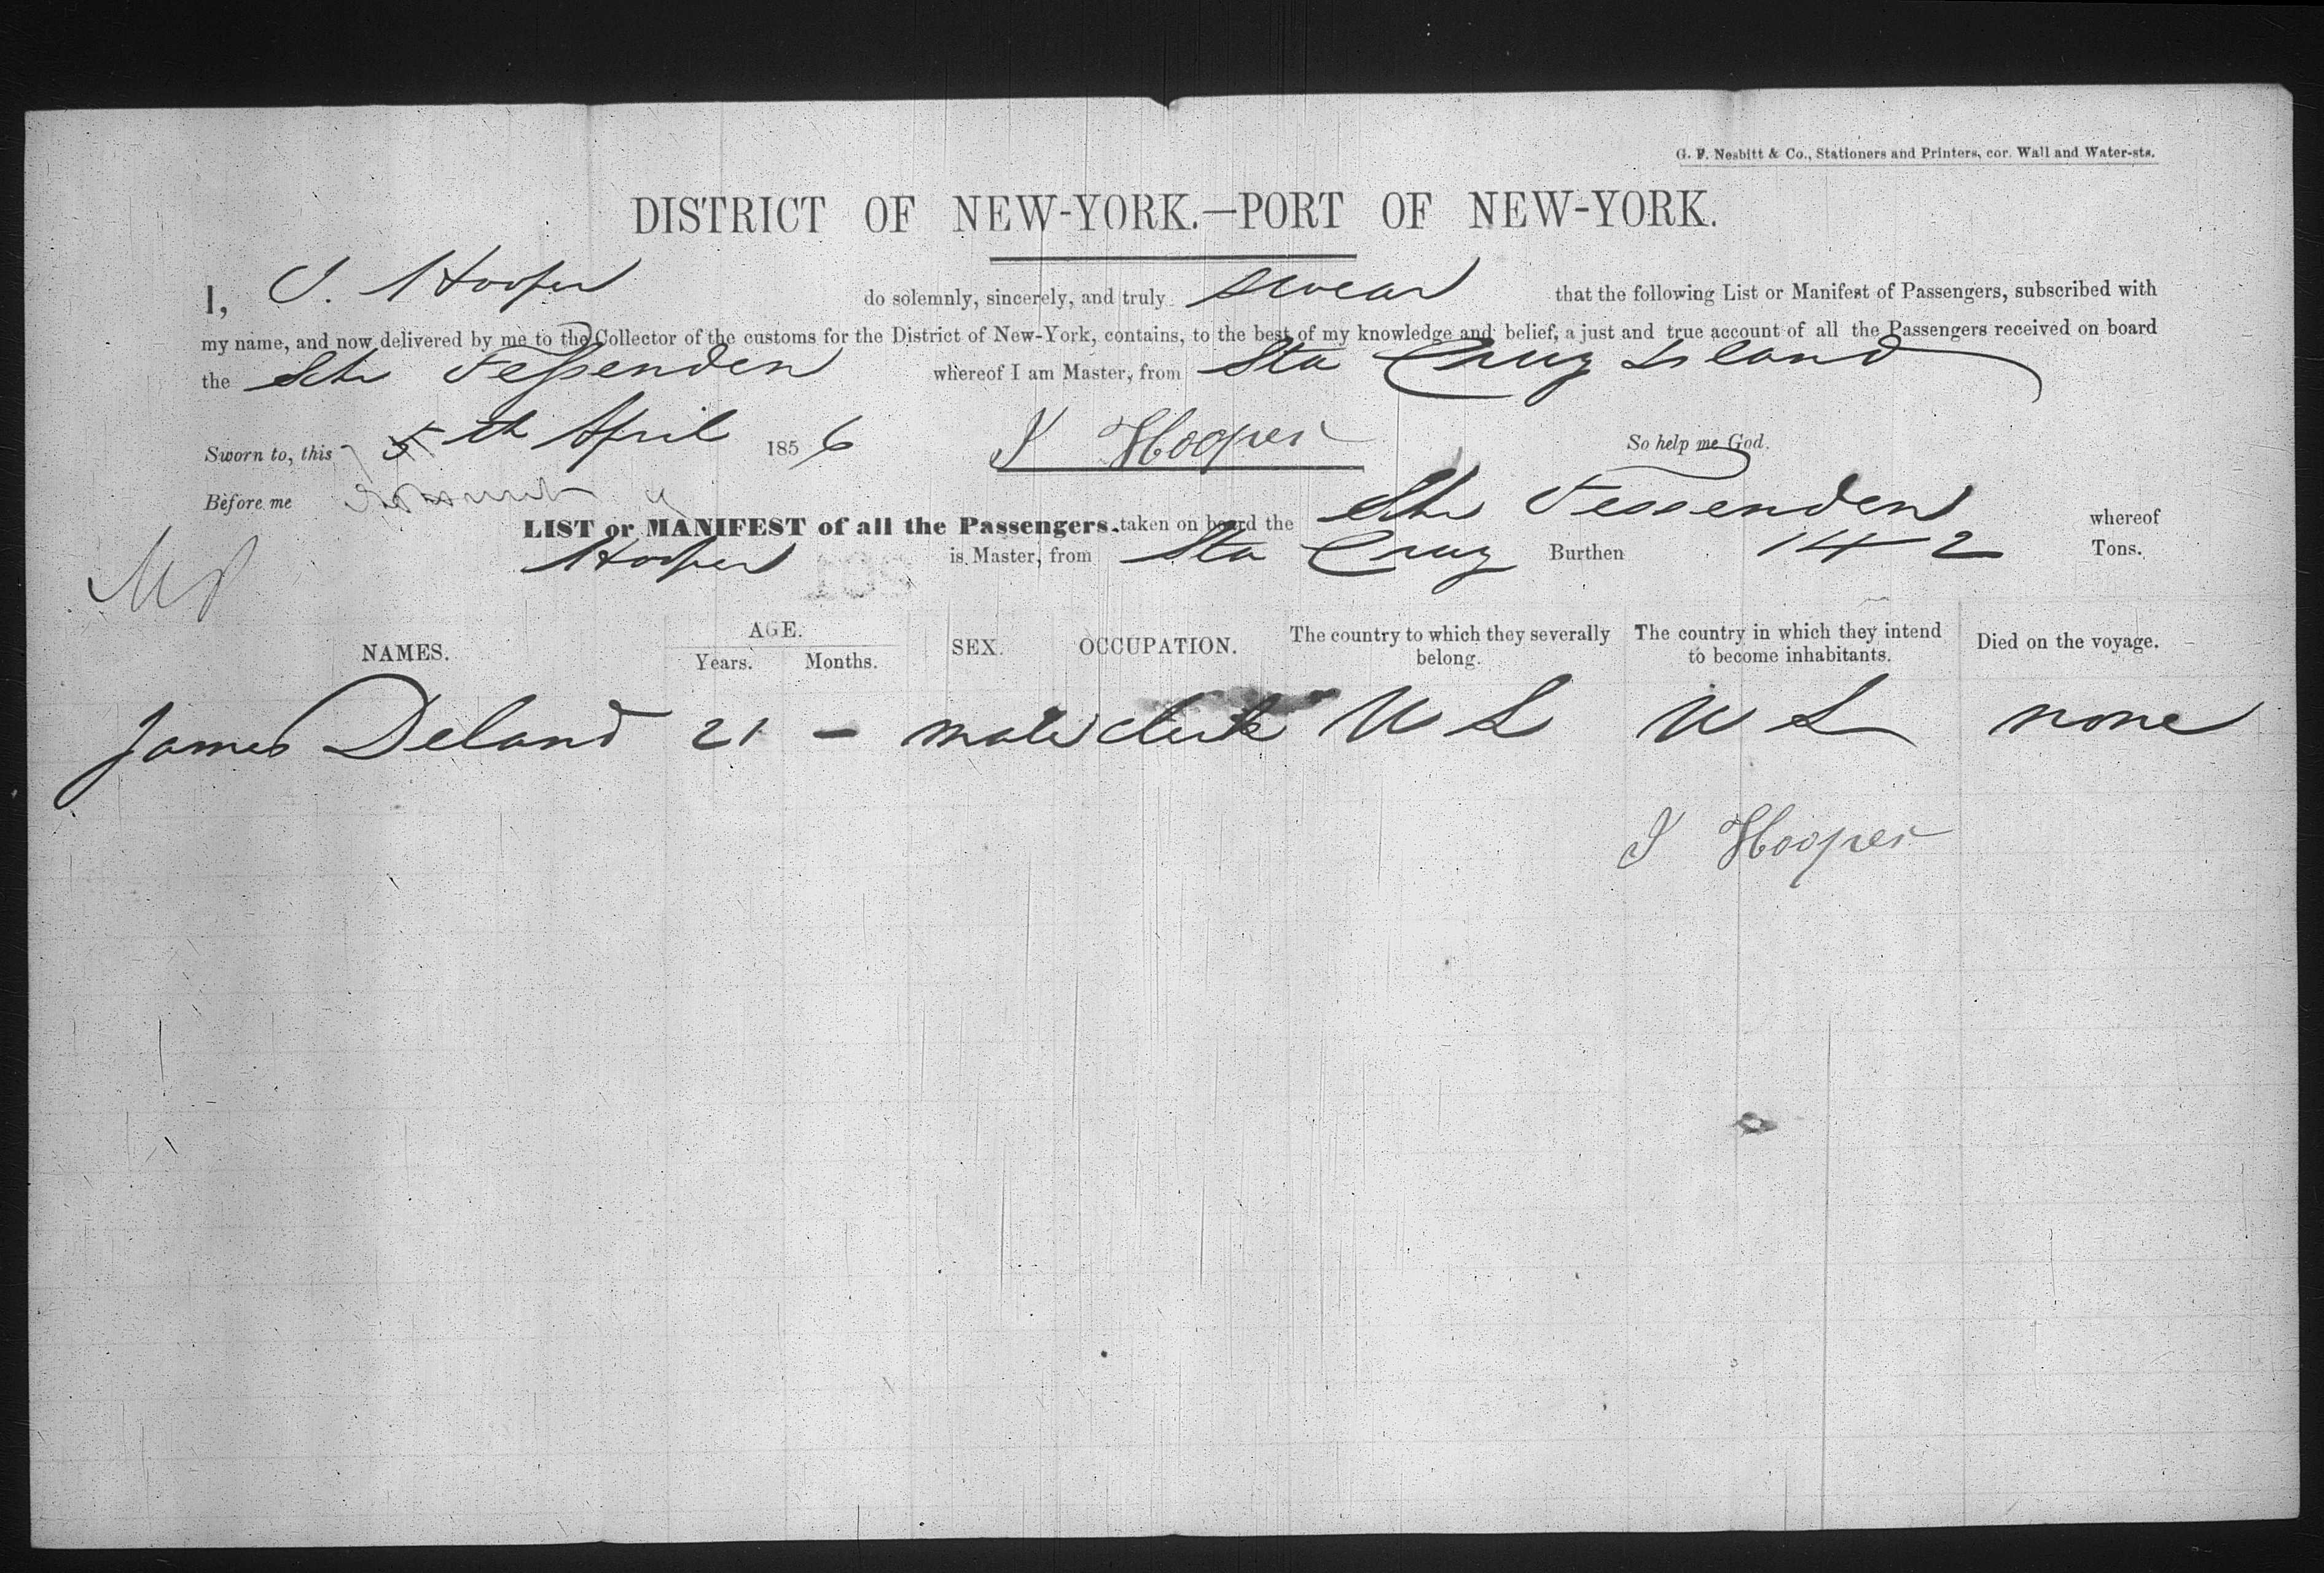 G. F. Nesbitt & Co., Stationers and Printers, cor. Wall and Water-sts.
DISTRICT OF NEW-YORK.—PORT OF NEW-YORK.
I, J. Hooper do solemnly, sincerely, and truly swear that the following List or Manifest of Passengers, subscribed with
my name, and now delivered by me to the Collector of the customs for the District of New-York, contains, to the best of my knowledge and belief, a just and true account of all the Passengers received on board
the Schr Fessenden whereof I am Master, from Sta Cruz Island
Sworn to, this 5th April 1856 J Hooper So help me God.
Before me
LIST or MANIFEST of all the Passengers taken on board the Schr Fessenden whereof
Hooper is Master, from Sta Cruz Burthen 142 Tons.
NAMES. AGE. Years. Months. SEX. OCCUPATION. The country to which they severally belong. The country in which they intend to become inhabitants. Died on the voyage.
James Deland 21 — male clerk U S U S none
J Hooper